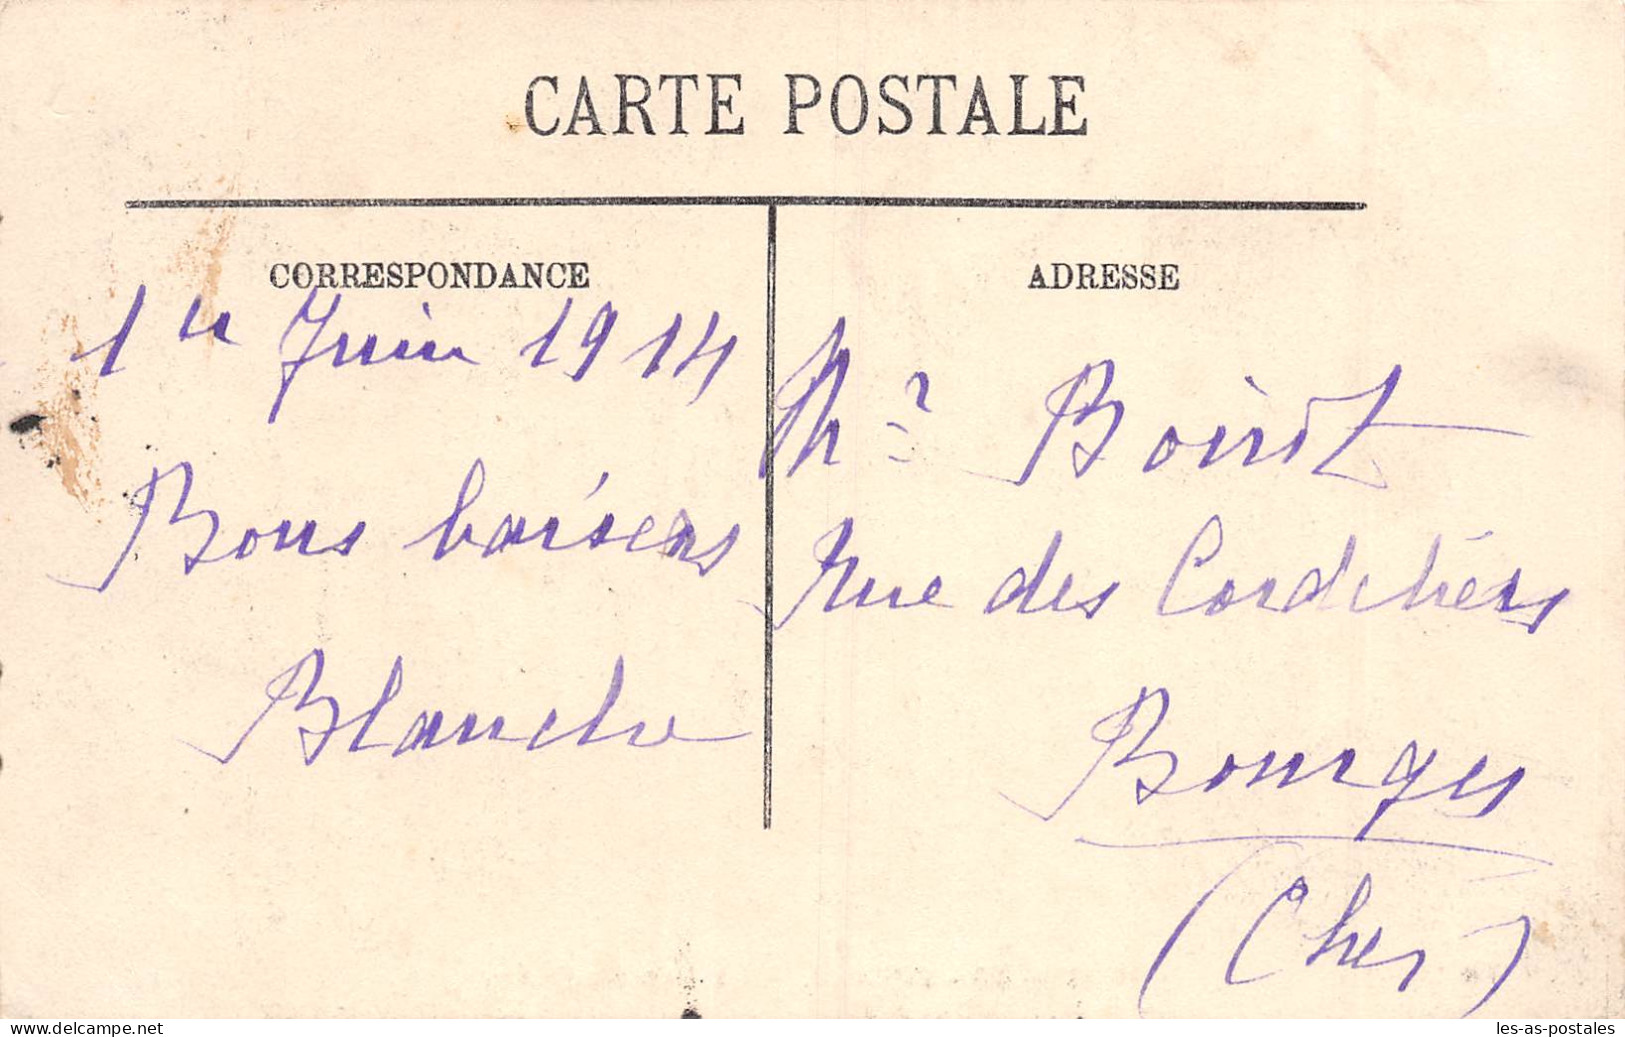 CARTE POSTALE
CORRESPONDANCE
1er Juin 1914
Bons baisers
Blanche
ADRESSE
Mr Boirot
rue des Cordeliers
Bourges
(Cher)
delcampe.net
les-as-postales